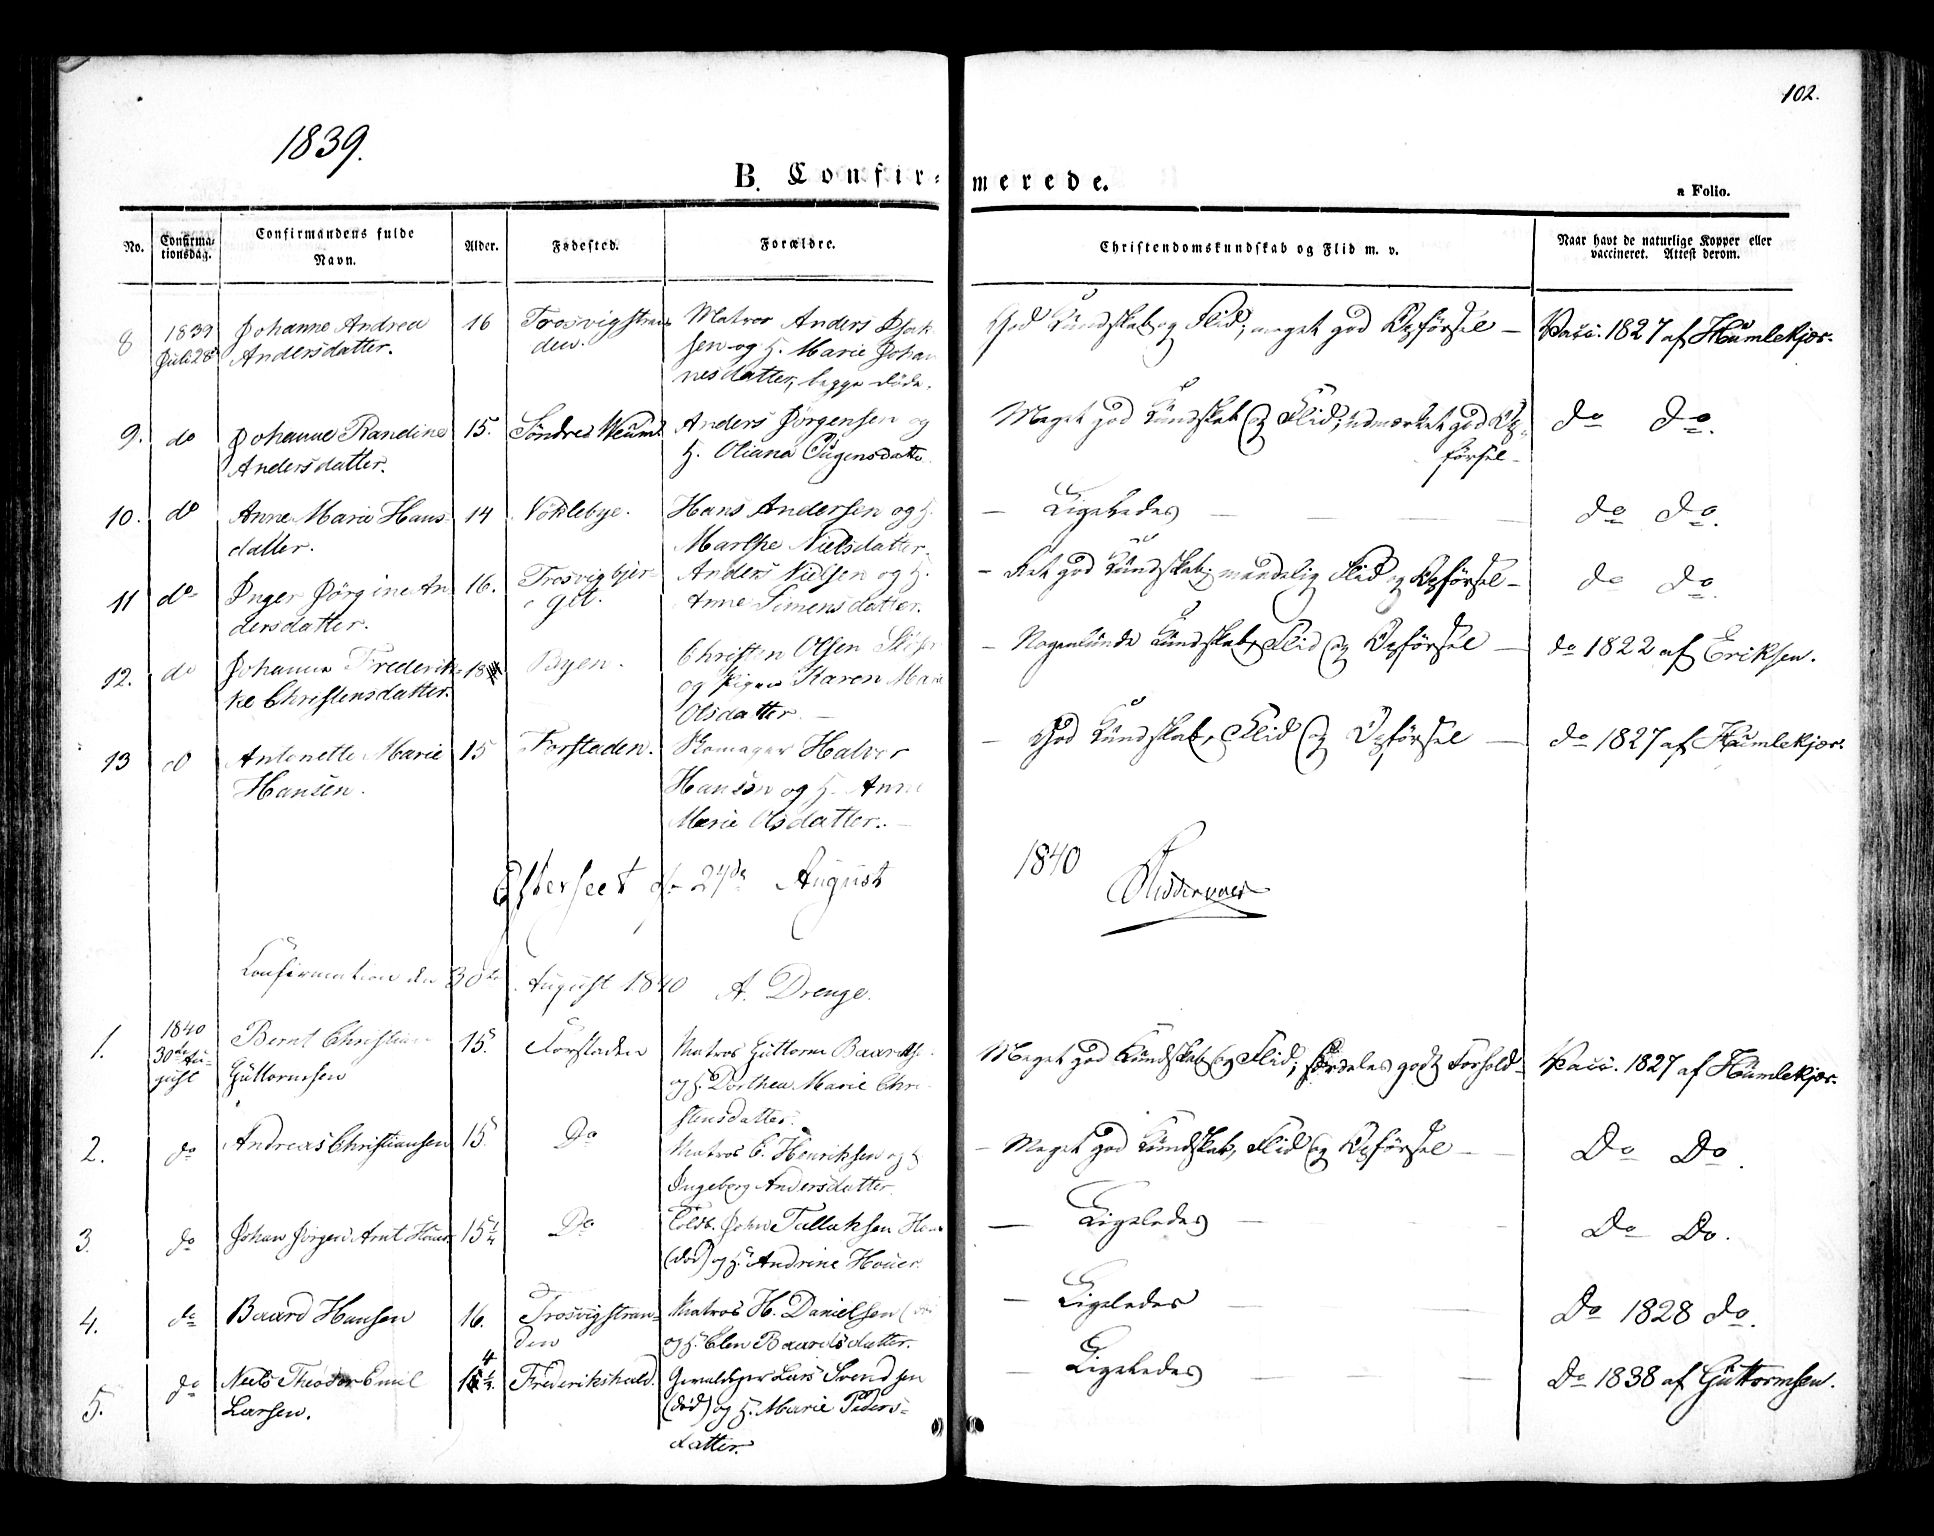 102.
1839.
B. Confir= merede.
a Folio.
No.
Confirma-
tionsdag.
Confirmandens fulde
Navn.
Alder.
Fødested.
Forældre.
Christendomskundskab og Flid m. v.
Naar havt de naturlige Kopper eller
vaccineret. Attest derom.
8 1839 Johanne Andrea 16 Trosvigstran- Matros Anders Isak God Kundskab og Flid; meget god Opførsel — Vacc. 1827 af Humlekjær.
Juli 28 Andersdatter. den. sen og H. Marie Johan
nesdatter, begge døde.
9. do Johanne Randine 15. Søndre Weum. Anders Jørgensen og Meget god Kundskab og Flid, udmærket god Op- do do.
Andersdatter. H. Oliana førsel —
10. do Anne Marie Hans 14 Noklebye. Hans Andersen og H. — Ligeledes — do do.
datter. Marthe Nielsdatter.
11 do Inger Jørgine An 16. Trosvigbjer- Anders Nielsen og H. — Ret god Kundskab; maadelig Flid og Opførsel — do do.
dersdatter. get. Anne Simensdatter.
12. do Johanne Frederik- 18 Byen. Christen Olsen — Nogenlunde Kundskab, Flid og Opførsel — do 1822 af Eriksen.
ke Christensdatter. og Pigen Karen Marie
Olsdatter —
13 do Antonette Marie 15 Forstaden. Skomager Halvor — God Kundskab, Flid og Opførsel — do 1827 af Humlekjær.
Hansen. Hansen og H. Anne
Marie Olsdatter. —
Efterseet d. 24de August 1840
Confirmation den 30te August 1840 A. Drenge.
1. 1840 Bernt Christian 15. Forstaden Matros Guttorm Baardse Meget god Kundskab og Flid; særdeles godt Forhold — Vacc. 1827 af Humlekjær.
30te Au- Guttormsen og H. Dorthea Marie Chri-
gust stensdatter.
2. do Andreas Christiansen 15. Do Matros C. Henriksen og H — Meget god Kundskab, Flid og Opførsel — Do Do.
Ingeborg Andersdatter.
3. do Johan Jørgen Arnt 15 1/4 Do Toldb. John Tallaksen — Ligeledes — Do Do.
(død) og H. Andrine Houer.
4. do Baard Hansen 16. Trosvigstran- Matros H. Danielsen — Ligeledes — Do 1828 do.
den og H. Elen Baardsdatter.
5. do Niels Theodor Emil 14 1/2. Frederikshald. Gevaldiger Lars Svendsen — Ligeledes — Do 1838 af Guttormsen.
Larsen. (død) og H. Marie Peders-
datter.